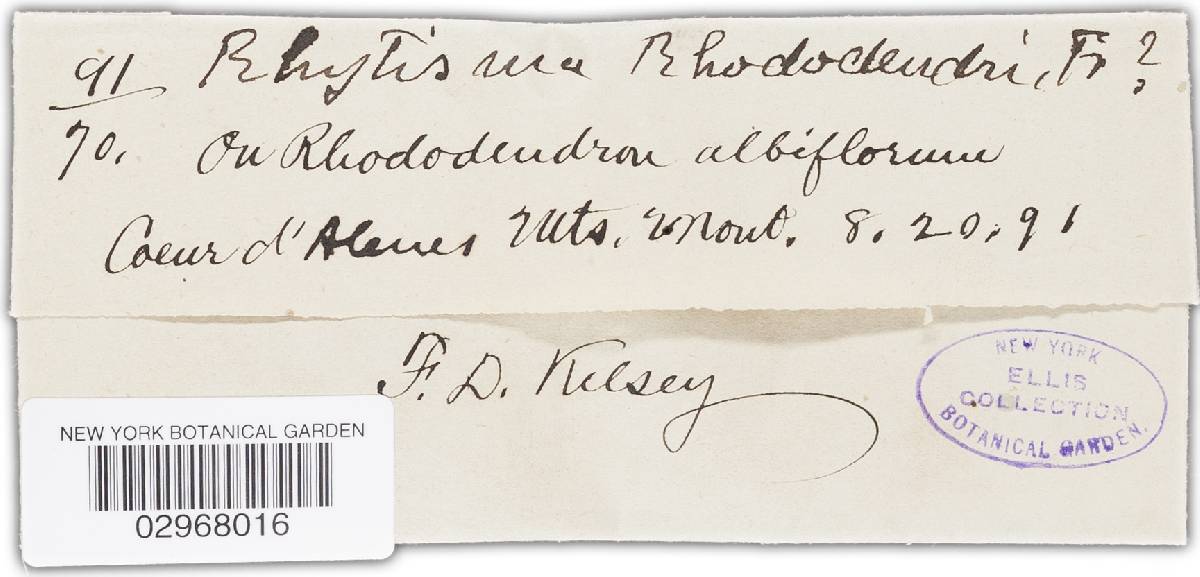 91 Rhytisma Rhododendri, Fr ?
70. On Rhododendron albiflorum
Coeur d'Alenes Mts. Mont. 8. 20. 91
F. D. Kelsey
NEW YORK
ELLIS
COLLECTION
BOTANICAL GARDEN.
NEW YORK BOTANICAL GARDEN
02968016